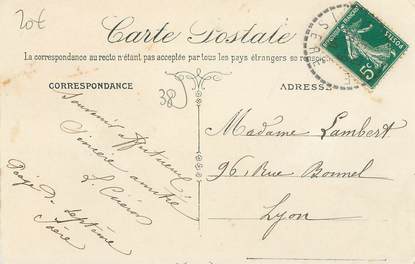 20€
Carte Postale
La correspondance au recto n'étant pas acceptée par tous les pays étrangers se renseigner
CORRESPONDANCE
ADRESSE
38
ISERE
5c
Souvenir affectueux
Sincère amitié
Septème
Isère
Madame Lambert
96, Rue Bonnel
Lyon